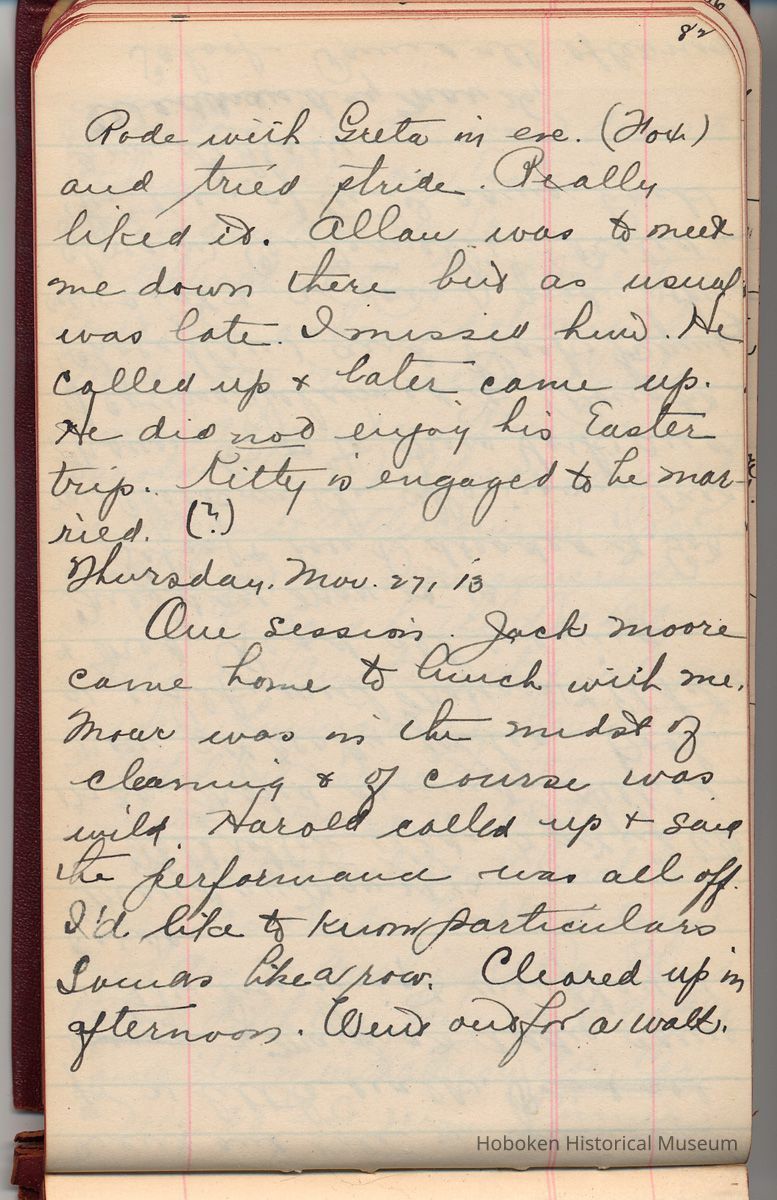 82
Rode with Greta in eve. (Fox)
and tried stride. Really
liked it. Allan was to meet
me down there but as usual
was late. I missed him. He
called up & later came up.
He did not enjoy his Easter
trip. Kitty is engaged to be mar-
ried. (?)
Thursday, Mar. 27, 13
One session. Jack Moore
came home to lunch with me.
Moar was in the midst of
cleaning & of course was
wild. Harold called up & said
the performance was all off.
I'd like to know particulars
Sounds like a row. Cleared up in
afternoon. Went out for a walk.
Hoboken Historical Museum